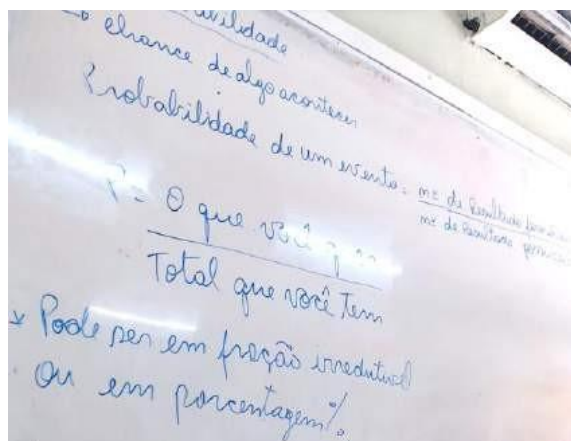 chance de algo acontecer
Probabilidade de um evento = nº de Resultado
nº de Resultados
P = O que você
Total que você Tem
* Pode ser em fração irredutível
Ou em porcentagem %.